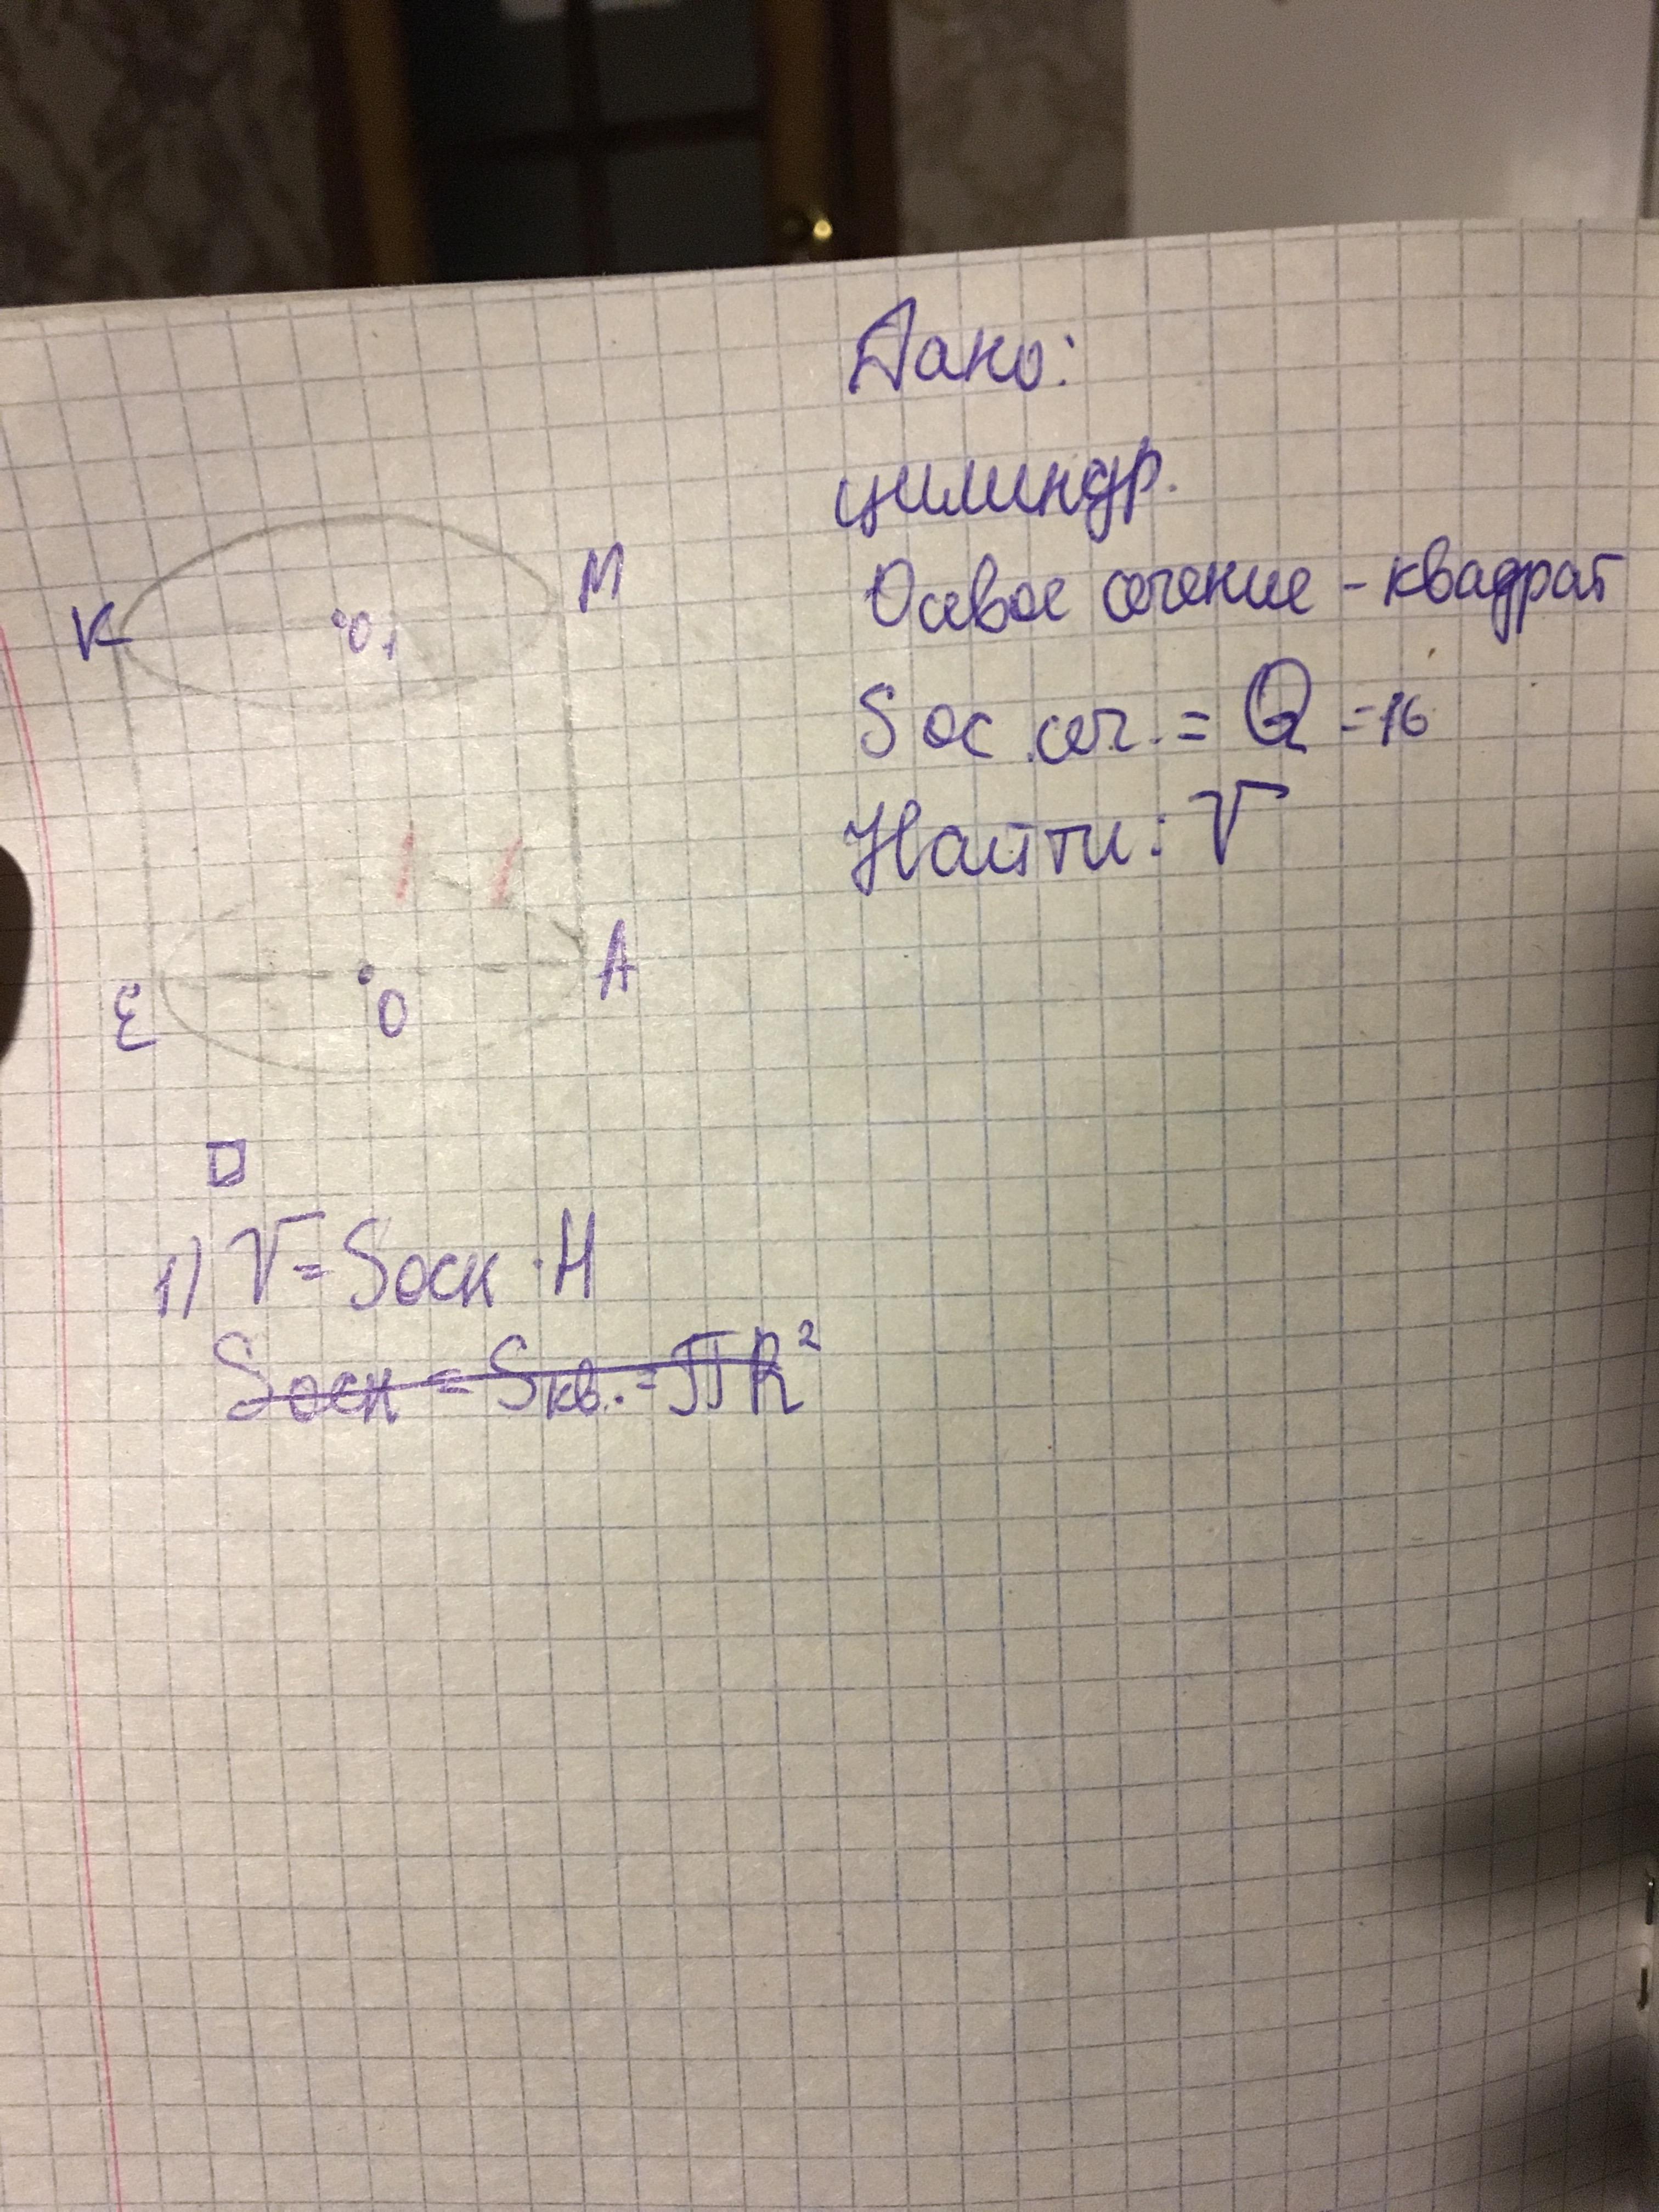 Дано:
цилиндр.
Осевое сечение - квадрат
Sос. сеч. = Q = 16
Найти: V
K
M
O₁
E
O
A
1) V = Sосн · H
Sосн = Sкв. = πR²